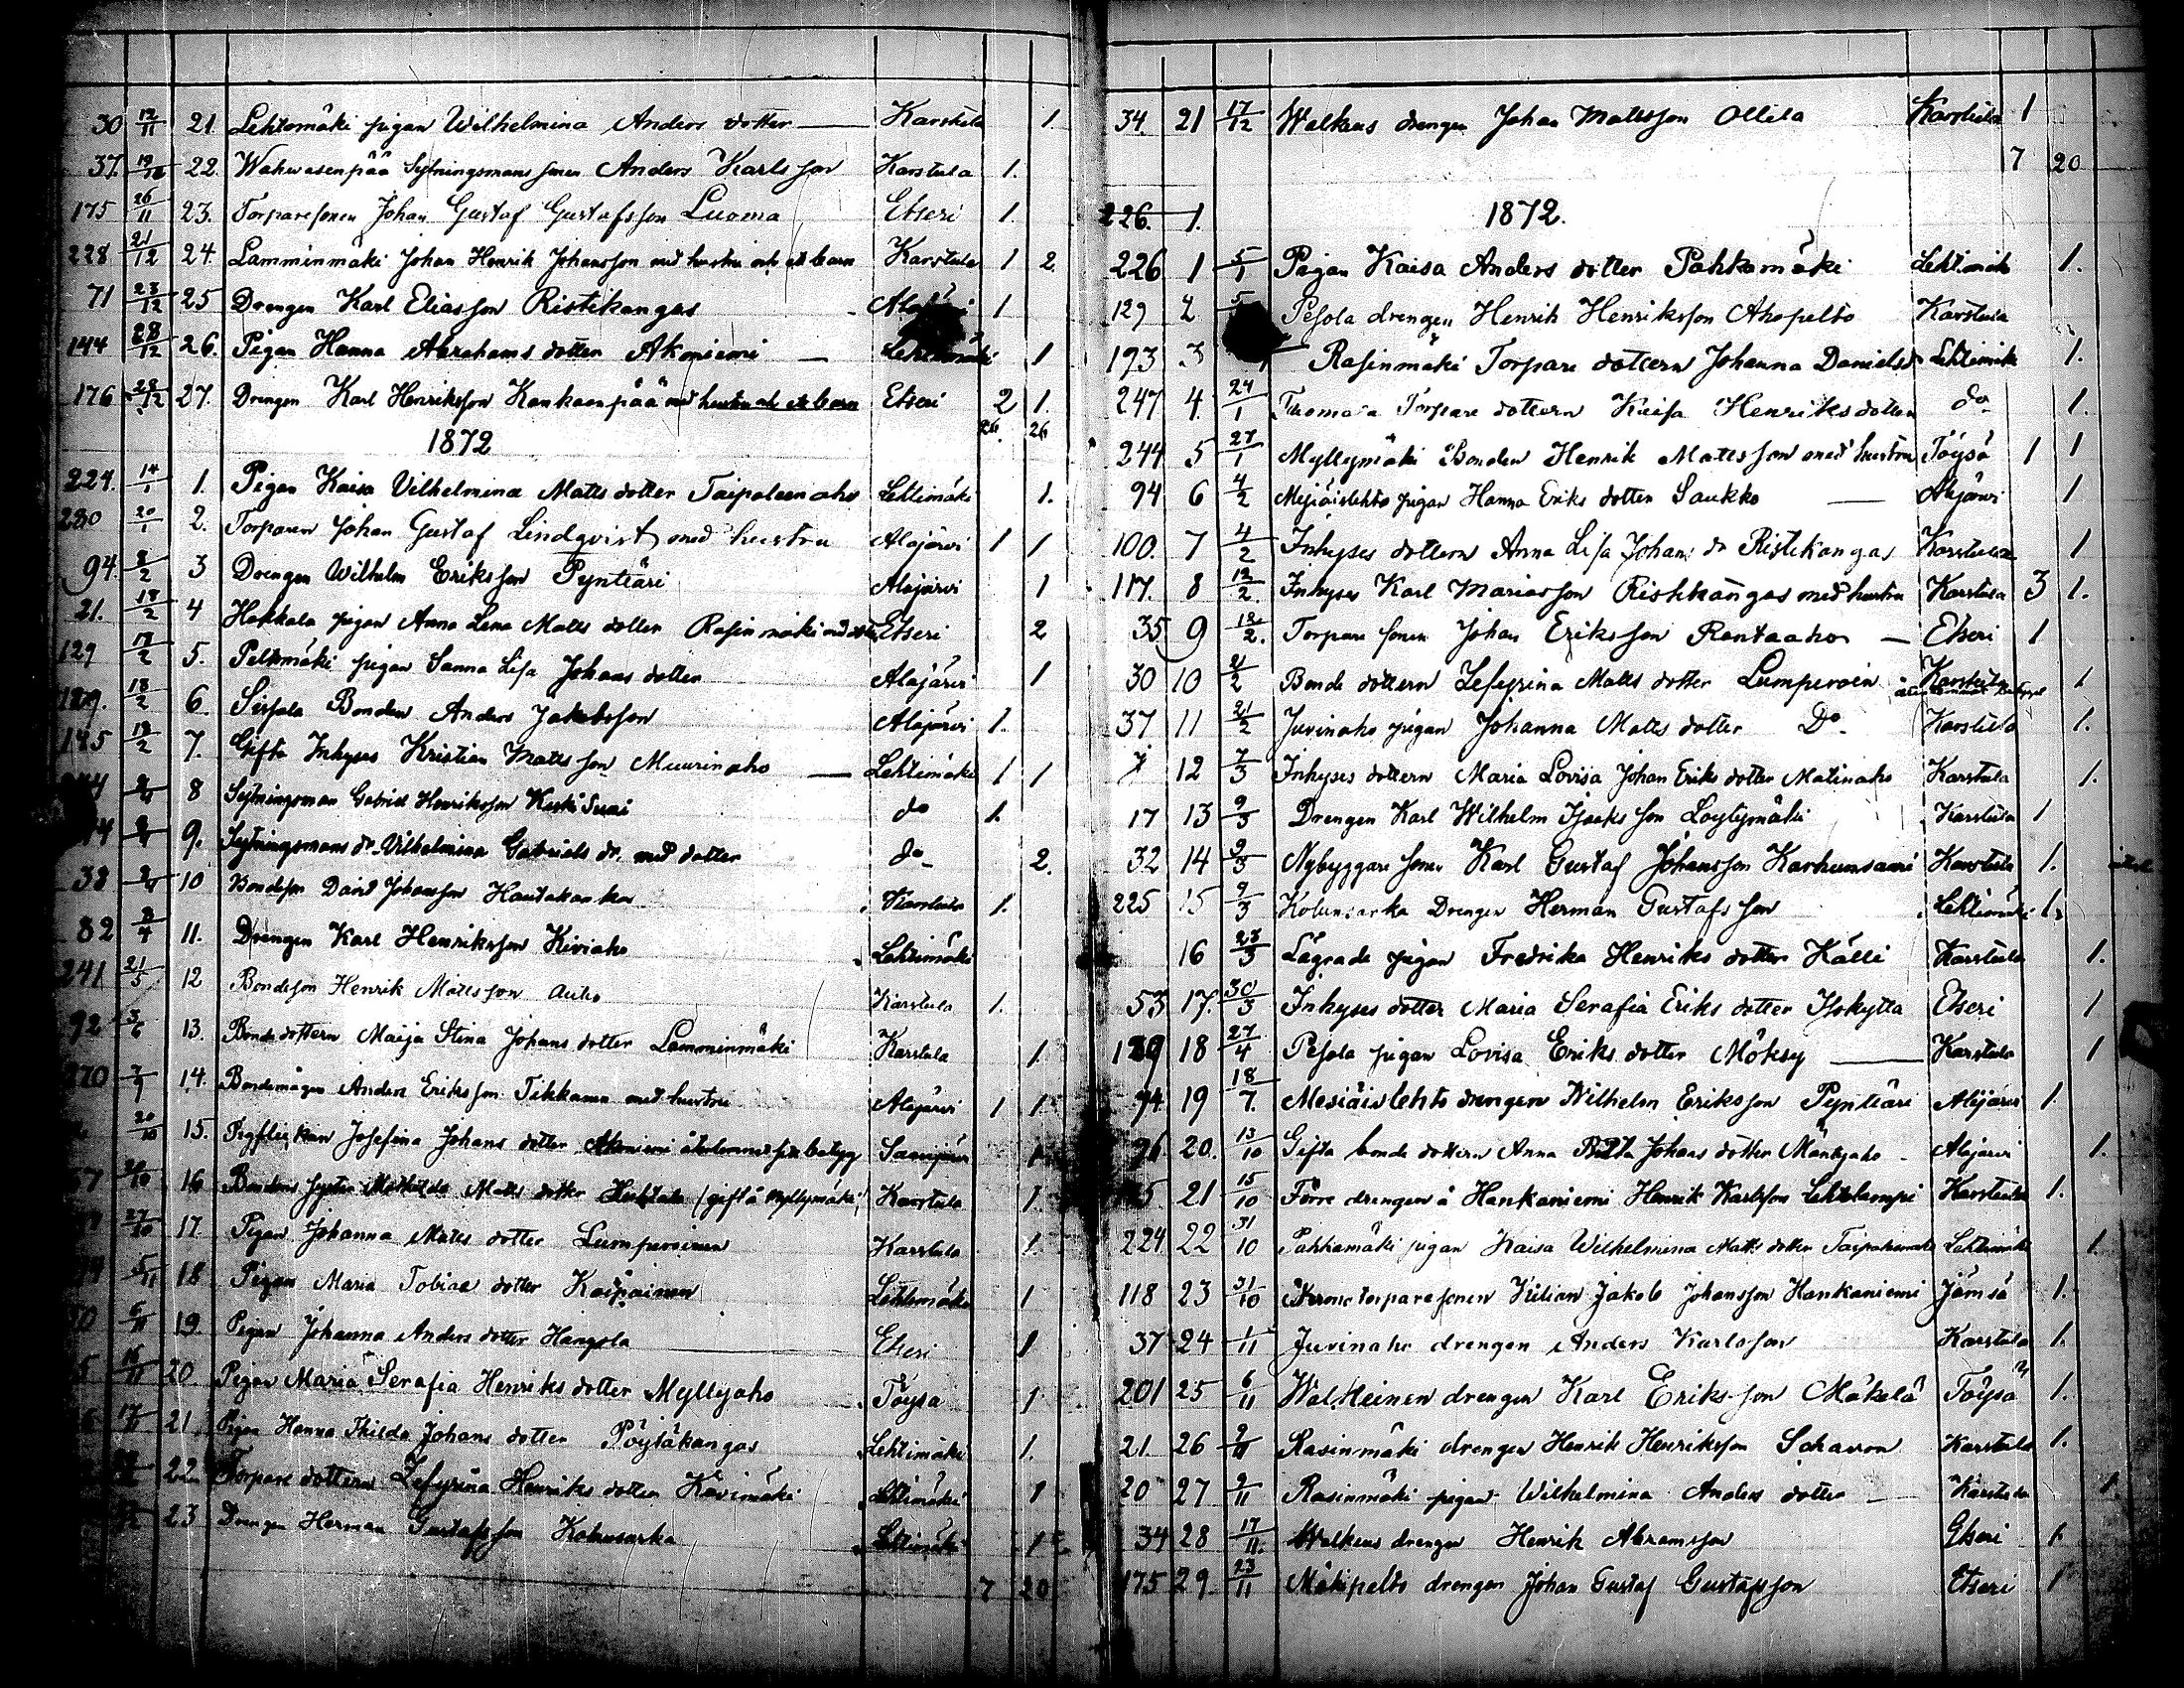 30 12/11 21. Lehtomäki pigan Wilhelmina Anders dotter — Karstula 1.
37. 22. Wahwasenpää Sytningsmans sonen Anders Karlsson Karstula 1.
175 26/11 23. Torparesonen Johan Gustaf Gustafsson Luoma Etseri 1.
228 21/12 24. Lamminmäki Johan Henrik Johansson med hustru och ett barn Karstula 1 2.
71 23/12 25 Drengen Karl Eliasson Ristikangas 1
144 28/12 26. Pigan Hanna Abrahams dotter Akoniemi — Lehtimäki 1
176 28/12 27. Drengen Karl Henriksson Kankaanpää med hustru och ett barn Etseri 2 1.
26. 26
1872
224. 14/1 1. Pigan Kaisa Vilhelmina Matts dotter Taipaleenaho Lehtimäki 1.
230 20/1 2. Torparen Johan Gustaf Lindqvist med hustru Alajärvi 1 1
94. 8/2 3 Drengen Wilhelm Eriksson Pynttäri Alajärvi 1
21. 18/2 4 Hakkala pigan Anna Lena Matts dotter Rasinmäki Etseri 2
129 18/2 5. Peltomäki pigan Sanna Lisa Johans dotter Alajärvi 1
18/2 6. Bonden Anders Jakobsson Alajärvi 1.
145 18/2 7. Gifta Inhyses Kristian Mattsson Muurinaho — Lehtimäki 1 1
8 Sytningsman Gabriel Henriksson do 1.
9. Sytningsmans dr. Vilhelmina Gabriels dr. med dotter do 2.
38 10 Bondeson David Johansson Hautakanka Karstula 1.
82 3/4 11. Drengen Karl Henriksson Kiviaho Lehtimäki
241 21/5 12 Bondeson Henrik Mattsson Autio Karstula 1.
92 3/6 13. Bonde dottern Maija Stina Johans dotter Lamminmäki Karstula 1
270 14. Bondemågen Anders Eriksson Tikkanen med hustru Alajärvi 1 1
20/10 15. Josefina Johans dotter Akoniemi 1
16 Bondens syster Mathilda Matts dotter (gift å Myllymäki) Karstula 1.
27/10 17. Pigan Johanna Matts dotter Lumperoinen Karstula 1.
5/11 18 Pigan Maria Tobias dotter Kaipainen Lehtimäki 1
6/11 19. Pigan Johanna Anders dotter Hangola Etseri 1
20. Pigan Maria Serafia Henriks dotter Myllyaho Töysä 1
21. Pigan Hanna Thilda Johans dotter Pöytäkangas Lehtimäki 1.
22 Torpare dottern Zefyrina Henriks dotter Kävimäki Lehtimäki 1
23 Drengen Herman Gustafsson Kolunsarka Lehtimäki 1
7 20
34. 21 17/12 Walkeus drengen Johan Mattsson Ollila Karstula 1
7 20
226. 1. 1872.
226 1 5/1 Pigan Kaisa Anders dotter Pahkamäki Lehtimäki 1.
129 2 Pesola drengen Henrik Henriksson Ahopelto Karstula
193 3 Rasinmäki Torpare dottern Johanna Daniels Lehtimäki 1.
247 4. 24/1 Tuomala Torpare dottern Kaisa Henriks dotter do 1.
244 5 27/1 Myllymäki Bonden Henrik Mattsson med hustru Töysä 1 1
94 6 4/2 Mesiäislehto pigan Hanna Eriks dotter Saukko — Alajärvi 1
100. 7 4/2 Inhyses dottern Anna Lisa Johans dr Ristikangas Karstula 1
117. 8 12/2. Inhyses Karl Mariasson Ristikangas med hustru Karstula 3 1.
35 9 12/2. Torpare sonen Johan Eriksson Rantaaho — Etseri 1
30 10 21/2 Bonde dottern Zefyrina Matts dotter Lumperoin Karstula 1
37 11 21/2 Juvinaho pigan Johanna Matts dotter Do Karstula 1.
7 12 7/3 Inhyses dottern Maria Lovisa Johan Eriks dotter Matinaho Karstula 1.
17 13 9/3 Drengen Karl Wilhelm Isaksson Löytymäki Karstula 1
32 14 9/3 Nybyggare sonen Karl Gustaf Johansson Karhunsaari Karstula 1.
225 15 9/3 Kolunsarka Drengen Herman Gustafsson Lehtimäki 1.
16 23/3 Lägrade pigan Fredrika Henriks dotter Källi Karstula 1.
53 17. 30/3 Inhyses dotter Maria Serafia Eriks dotter Isokytta Etseri 1
129 18 27/4 Pesola pigan Lovisa Eriks dotter Möksy — Karstula 1
94 19 18/7. Mesiäislehto drengen Wilhelm Eriksson Pynttäri Alajärvi 1.
96 20. 13/10 Gifta bonde dottern Anna Britta Johans dotter Mäntyaho Alajärvi 1.
21 15/10 Förre drengen å Hankaniemi Henrik Karlsson Lehtolampi Karstula 1.
224 22 31/10 Pahkamäki pigan Kaisa Wilhelmina Matts dotter Taipaleenaho Lehtimäki 1.
118 23 31/10 Kronotorparesonen Kilian Jakob Johansson Hankaniemi Jämsä 1.
37 24 1/11 Juvinaho drengen Anders Karlsson Karstula 1.
201 25 6/11 drengen Karl Eriksson Mäkelä Töysä 1.
21. 26 Rasinmäki drengen Henrik Henriksson Karstula 1.
20 27 9/11 Rasinmäki pigan Wilhelmina Anders dotter — Karstula 1.
34 28 17/11. Walkeus drengen Henrik Abramsson Etseri 1
175 29 23/11 Mäkipelto drengen Johan Gustaf Gustafsson Etseri 1